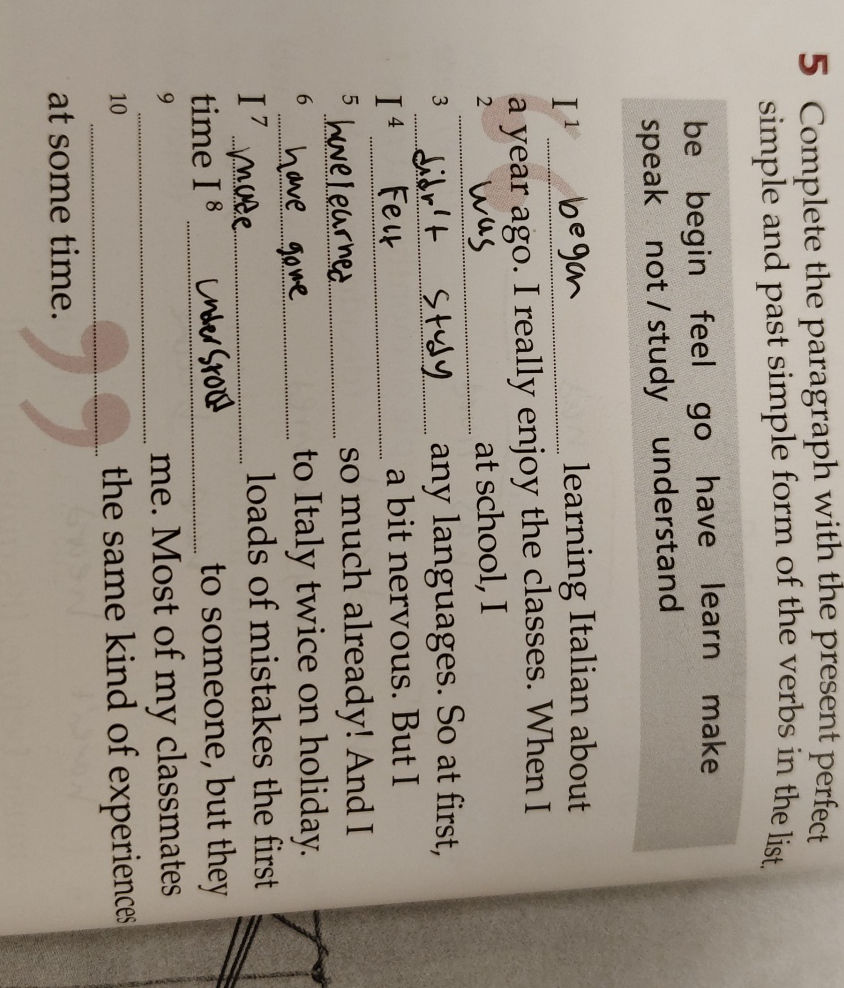 5 Complete the paragraph with the present perfect
simple and past simple form of the verbs in the list.
be begin feel go have learn make
speak not / study understand
I 1 began learning Italian about
a year ago. I really enjoy the classes. When I
2 was at school, I
3 didn't study any languages. So at first,
I 4 Felt a bit nervous. But I
5 have learned so much already! And I
6 have gone to Italy twice on holiday.
I 7 made loads of mistakes the first
time I 8 understood to someone, but they
9 me. Most of my classmates
10 the same kind of experiences
at some time.